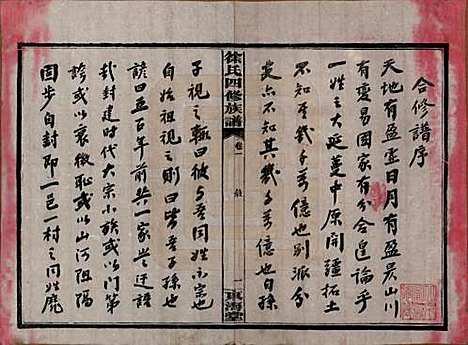 合修譜序
天地有盈虛日月有盈昃山川
有變易國家有分合皇論乎
一姓之大延蔓中原開疆拓土
不知吾幾千萬億也別派分
支亦不知其幾千萬億也自孫
徐氏四修族譜
卷一
序
一
東海堂
子視之輒曰彼与吾同姓而不宗也
自始祖視之則曰皆吾子孫也
諺曰五百年前共一家與之迂語
哉封建時代大宗小族或以門第
誇或以衰微恥或以山河阻隔
固步自封即一邑一村之同姓魔